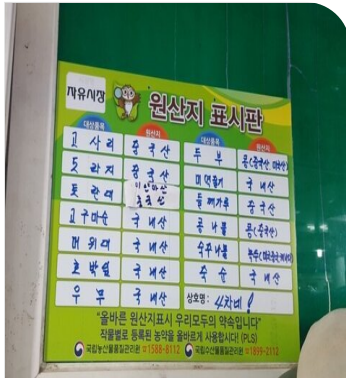 자유시장
원산지 표시판
대상품목 원산지 대상품목 원산지
고사리 중국산 두부 콩(중국산, 미국산)
도라지 중국산 미역줄기 국내산
토란대 중국산 들깨가루 중국산
고구마순 국내산 콩나물 콩(중국산)
머위대 국내산 숙주나물
호박잎 국내산 죽순 국내산
우무 국내산 상호명:
"올바른 원산지표시 우리모두의 약속입니다"
작물별로 등록된 농약을 올바르게 사용합시다! (PLS)
국립농산물품질관리원 ☎1588-8112 국립수산물품질관리원 ☎1899-2112